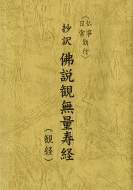 （仏事
日常勤行）
抄訳 佛説観無量寿経
（観経）